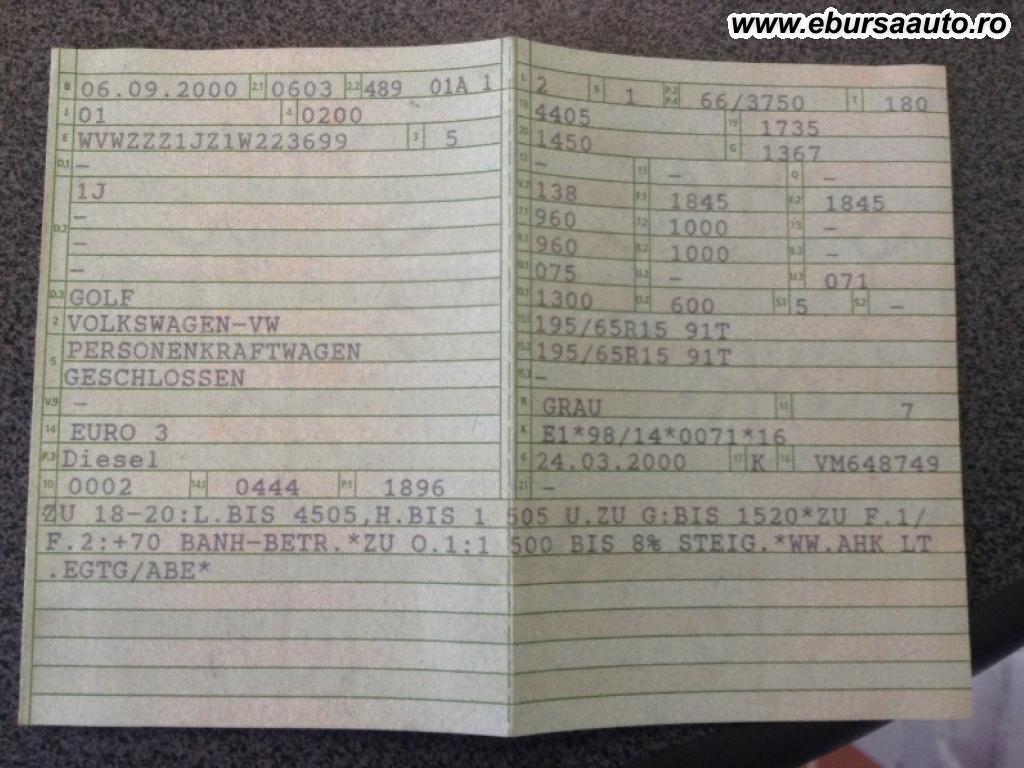 www.ebursaauto.ro
B 06.09.2000 2.1 0603 2.2 489 01A 1
J 01 4 0200
E WVWZZZ1JZ1W223699 3 5
D.1 –
1J
–
D.2
–
–
D.3 GOLF
2 VOLKSWAGEN-VW
5 PERSONENKRAFTWAGEN
GESCHLOSSEN
V.9 –
14 EURO 3
P.3 Diesel
10 0002 14.1 0444 P.1 1896
L 2 9 1 P.2 P.4 66/3750 T 180
18 4405 19 1735
20 1450 G 1367
12 – 13 – Q –
V.7 138 F.1 1845 F.2 1845
7.1 960 7.2 1000 7.3 –
8.1 960 8.2 1000 8.3 –
U.1 075 U.2 – U.3 071
O.1 1300 O.2 600 S.1 5 S.2 –
15.1 195/65R15 91T
15.2 195/65R15 91T
15.3 –
R GRAU 11 7
K E1*98/14*0071*16
6 24.03.2000 17 K 16 VM648749
21 –
ZU 18-20:L.BIS 4505,H.BIS 1 505 U.ZU G:BIS 1520*ZU F.1/
F.2:+70 BANH-BETR.*ZU O.1:1 500 BIS 8% STEIG.*WW.AHK LT
.EGTG/ABE*